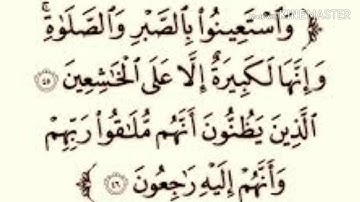 وَٱسْتَعِينُوا۟ بِٱلصَّبْرِ وَٱلصَّلَوٰةِ ۚ
وَإِنَّهَا لَكَبِيرَةٌ إِلَّا عَلَى ٱلْخَٰشِعِينَ ٤٥
ٱلَّذِينَ يَظُنُّونَ أَنَّهُم مُّلَٰقُوا۟ رَبِّهِمْ
وَأَنَّهُمْ إِلَيْهِ رَٰجِعُونَ ٤٦